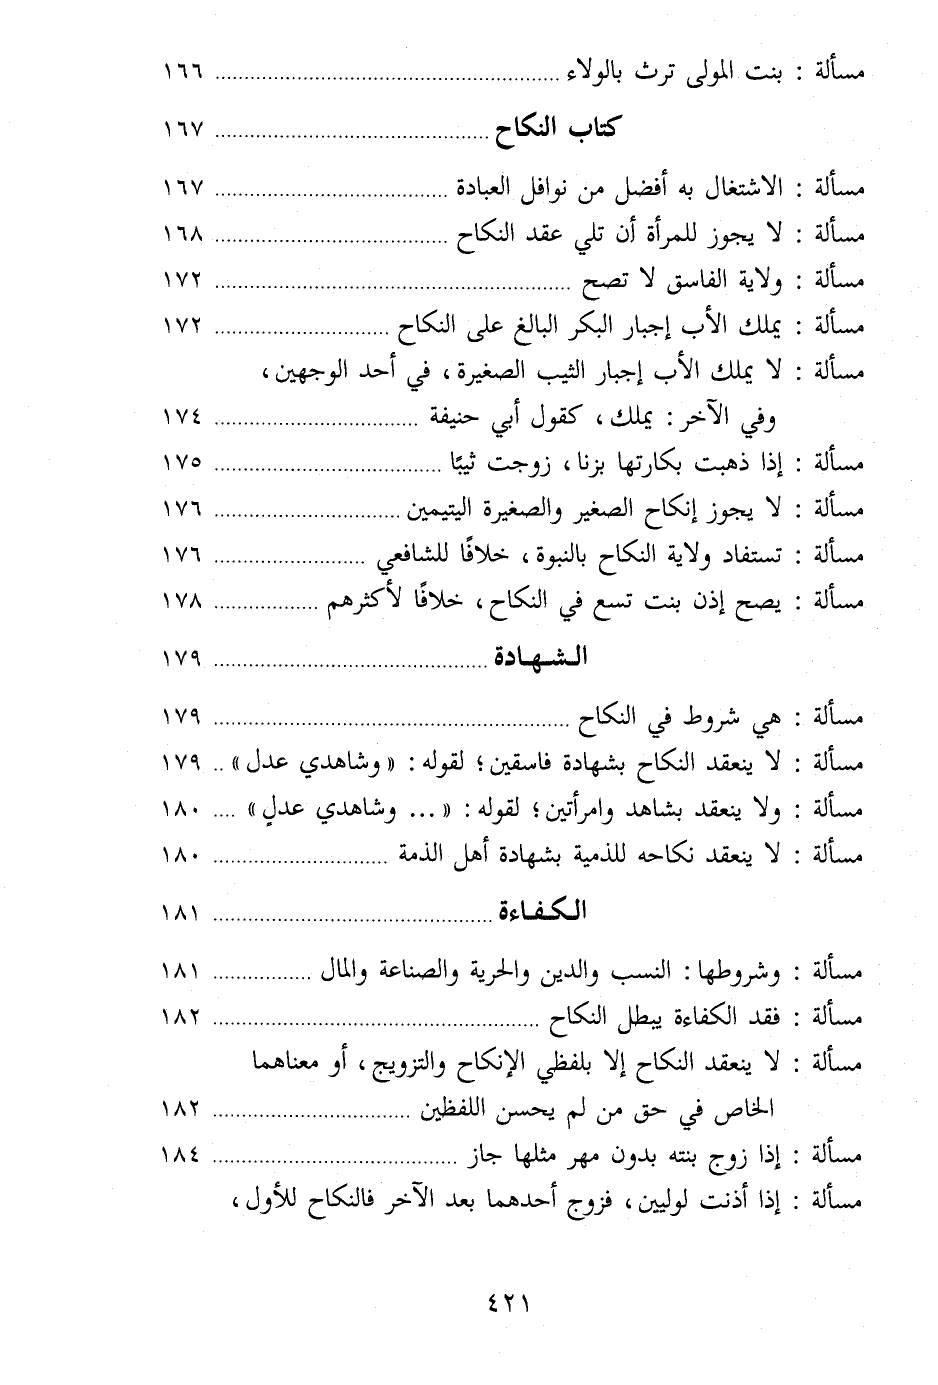 مسألة : بنت المولى ترث بالولاء ........ ١٦٦
كتاب النكاح ........ ١٦٧
مسألة : الاشتغال به أفضل من نوافل العبادة ........ ١٦٧
مسألة : لا يجوز للمرأة أن تلي عقد النكاح ........ ١٦٨
مسألة : ولاية الفاسق لا تصح ........ ١٧٢
مسألة : يملك الأب إجبار البكر البالغ على النكاح ........ ١٧٢
مسألة : لا يملك الأب إجبار الثيب الصغيرة ، في أحد الوجهين ،
وفي الآخر : يملك ، كقول أبي حنيفة ........ ١٧٤
مسألة : إذا ذهبت بكارتها بزنا ، زوجت ثيبًا ........ ١٧٥
مسألة : لا يجوز إنكاح الصغير والصغيرة اليتيمين ........ ١٧٦
مسألة : تستفاد ولاية النكاح بالنبوة ، خلافًا للشافعي ........ ١٧٦
مسألة : يصح إذن بنت تسع في النكاح ، خلافًا لأكثرهم ........ ١٧٨
الشهادة ........ ١٧٩
مسألة : هي شروط في النكاح ........ ١٧٩
مسألة : لا ينعقد النكاح بشهادة فاسقين ؛ لقوله : « وشاهدي عدل » .. ١٧٩
مسألة : ولا ينعقد بشاهد وامرأتين ؛ لقوله : « ... وشاهدي عدلٍ » .... ١٨٠
مسألة : لا ينعقد نكاحه للذمية بشهادة أهل الذمة ........ ١٨٠
الكفاءة ........ ١٨١
مسألة : وشروطها : النسب والدين والحرية والصناعة والمال ........ ١٨١
مسألة : فقد الكفاءة يبطل النكاح ........ ١٨٢
مسألة : لا ينعقد النكاح إلا بلفظي الإنكاح والتزويج ، أو معناهما
الخاص في حق من لم يحسن اللفظين ........ ١٨٢
مسألة : إذا زوج بنته بدون مهر مثلها جاز ........ ١٨٤
مسألة : إذا أذنت لوليين ، فزوج أحدهما بعد الآخر فالنكاح للأول ،
٤٢١